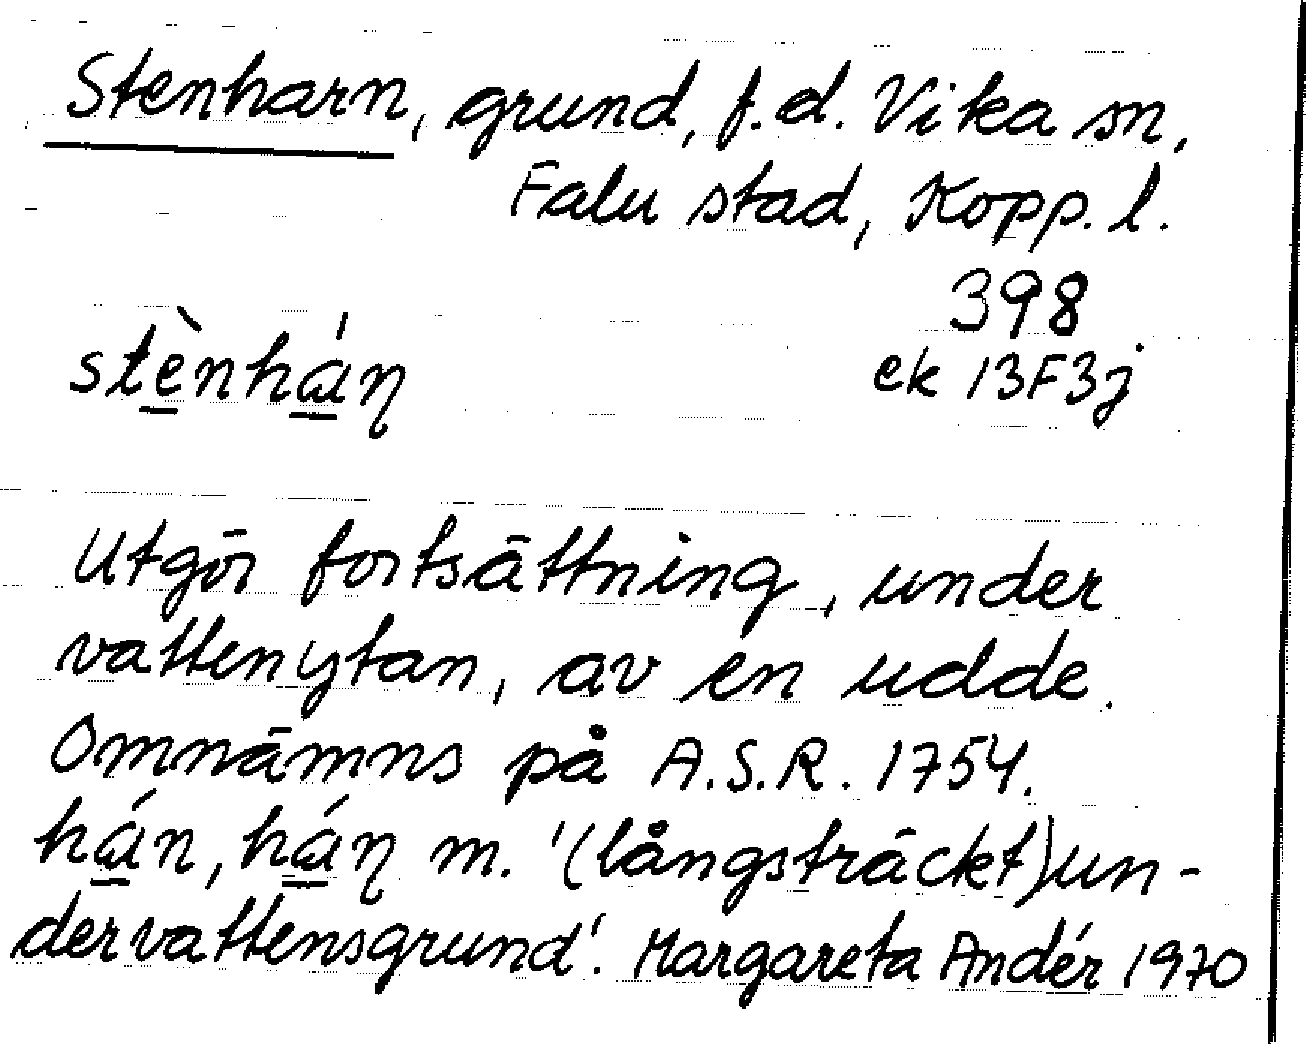 Stenharn, grund, f.d. Vika sn,
Falu stad, Kopp. l.
398
stènhán̨ ek 13F3j
Utgör fortsättning, under
vattenytan, av en udde.
Omnämns på A.S.R. 1754.
hán, hán̨ m. '(långsträckt)un-
dervattensgrund'. Margareta Andér 1970